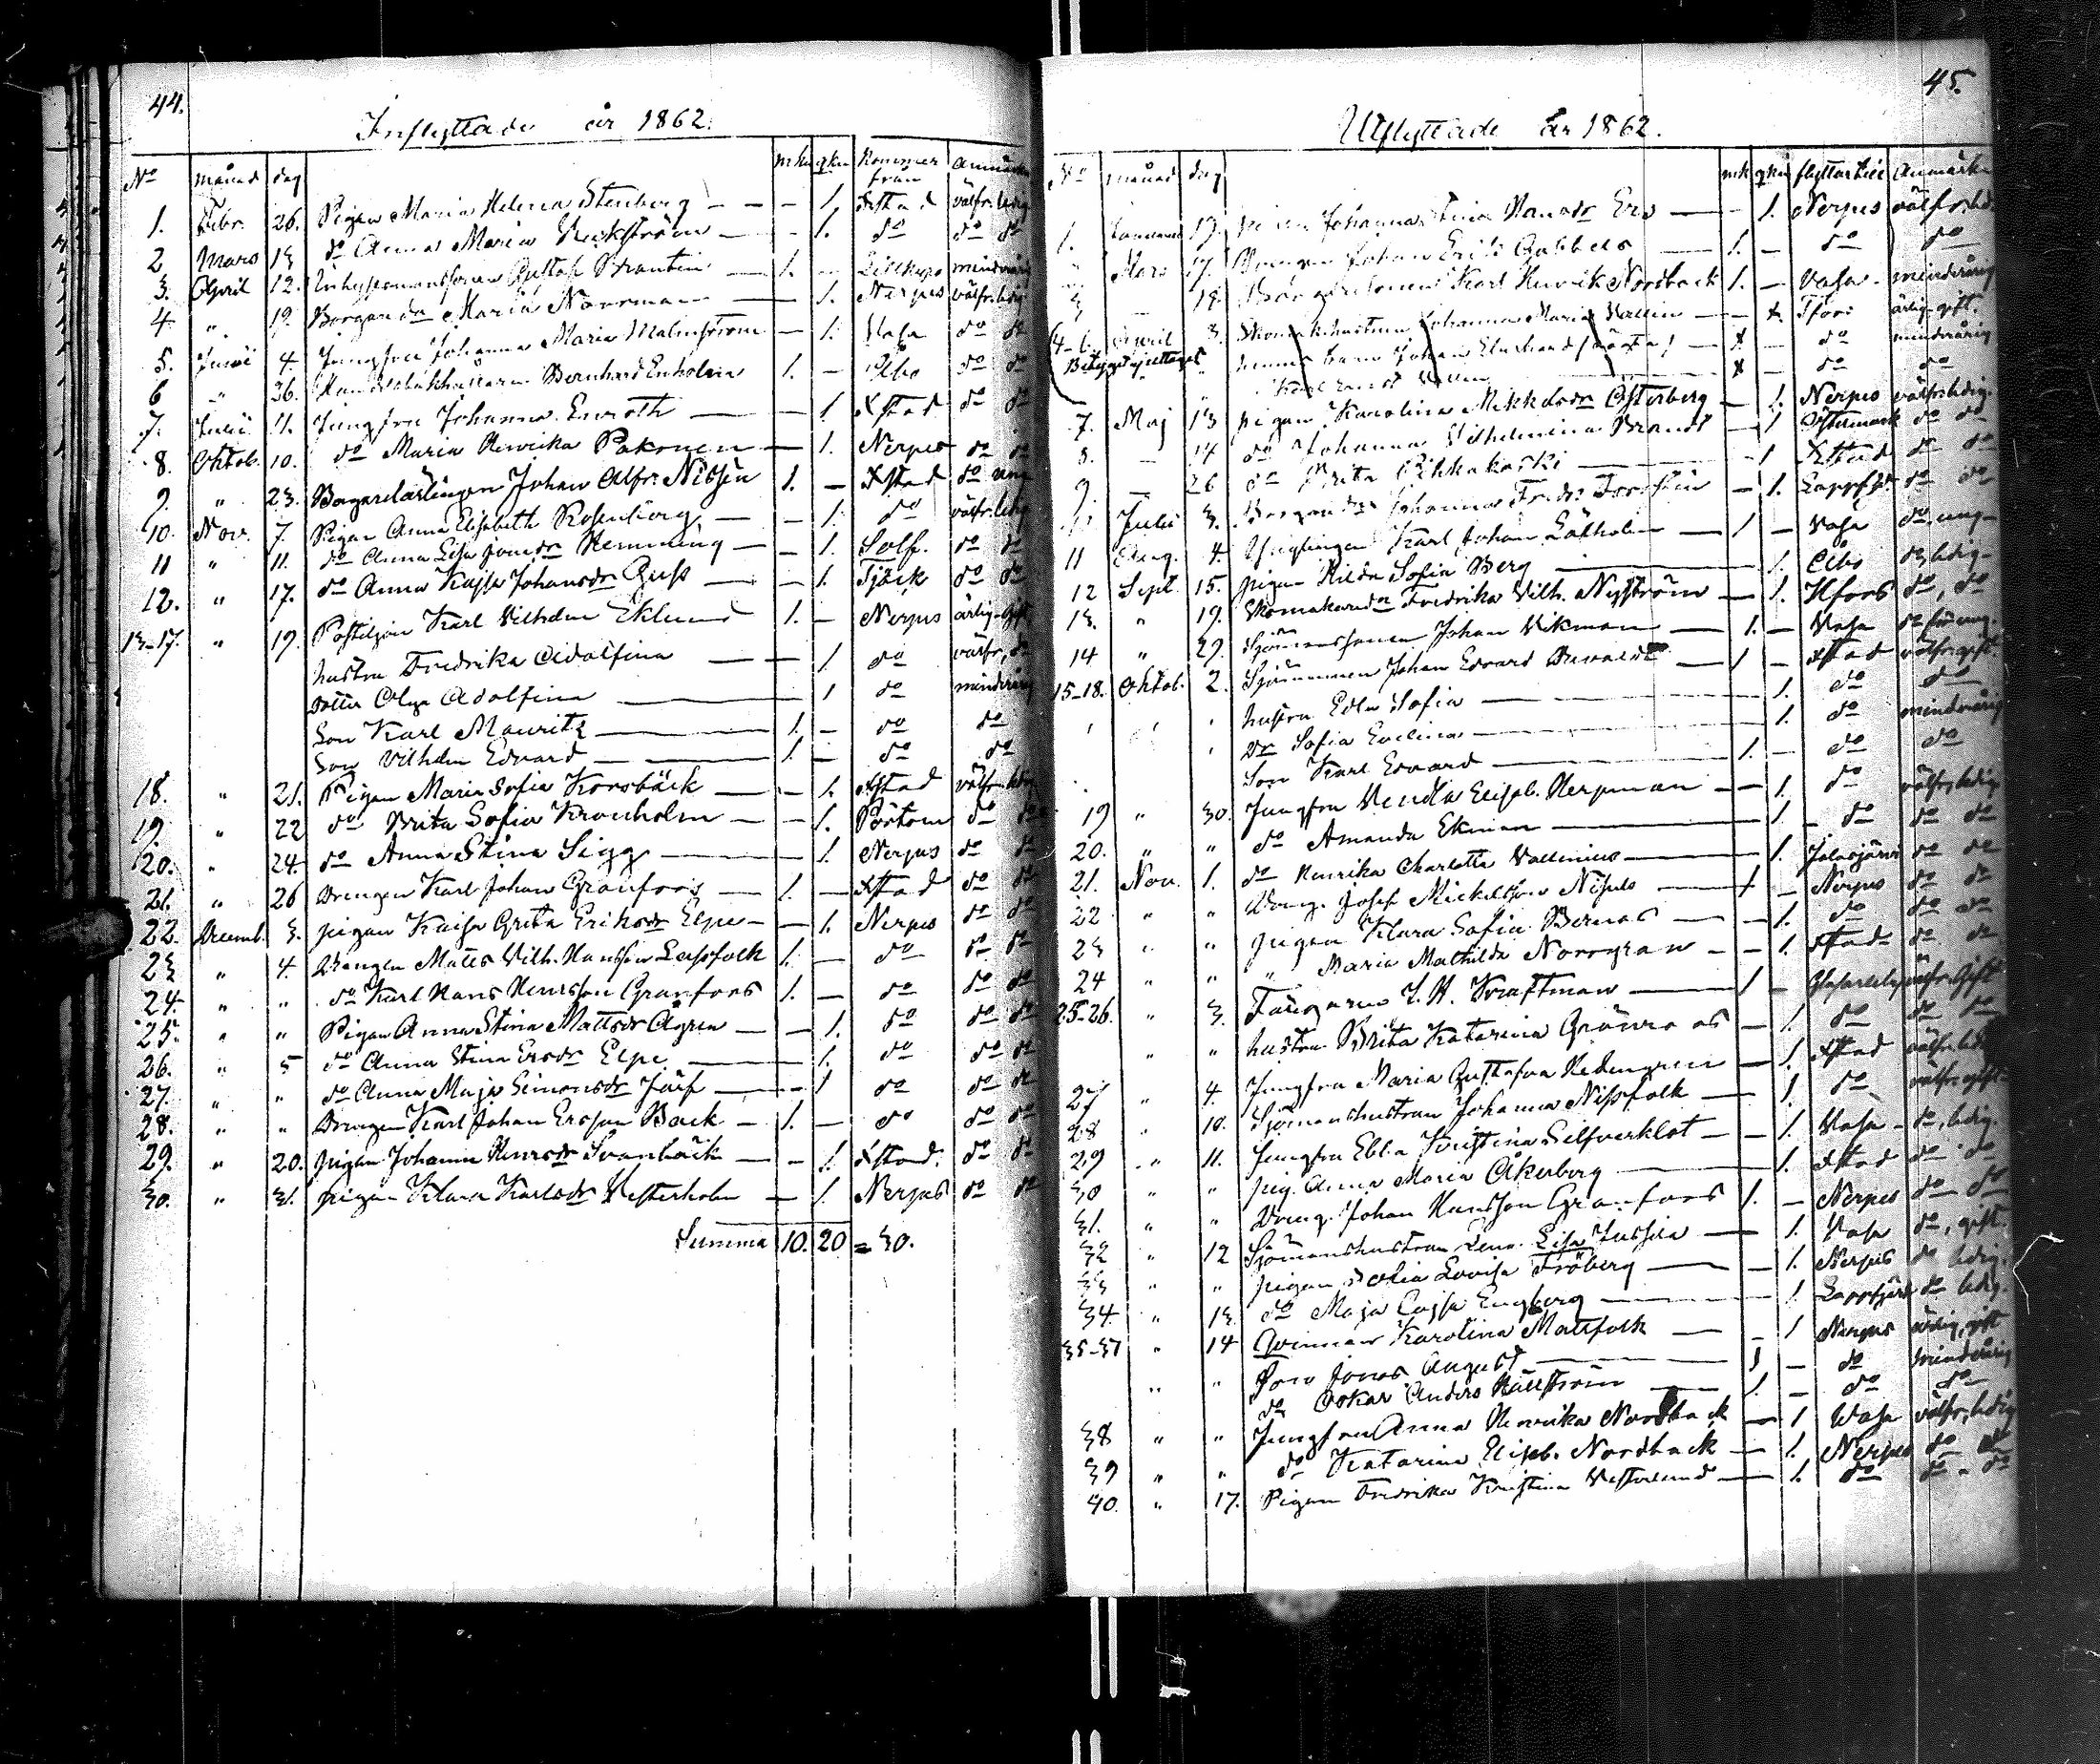 44.
Inflyttade år 1862.
No månad dag mkn qkn kommer från Anmärkn
1. Febr. 26. Pigan Maria Helena Stenberg — — — 1. Xstad välfr. ledig
2 Mars 13 do Anna Maria Beckström — — 1. do do do
3. April 12. Inhysesmanssonen Gustaf Brantin — 1. — minderårig
4. " 19. Borgaredr Maria Norrman — — 1. Nerpes välfr. ledig
5. Junii 4. Jungfru Johanna Maria Malmström — 1. Vasa do do
6 " 26. Handelsbokhållaren Bernhard Enholm 1. — Åbo do do
7. Julii 11. Jungfru Johanna Enroth — — 1 Xstad do do
8. Oktob. 10. do Maria Henrika Pakonen — 1. Nerpes do do
9. " 23. Bagarelärlingen Johan Alfr. Nissén 1. — Xstad do ung
10. Nov. 7. Pigan Anna Elisabeth Rosenberg — — 1. do välfr. ledig
11 " 11. do Anna Lisa Hemming — — 1. Solf. do do
12. " 17. do Anna Kajsa Johansdr Guss — — 1. Tjöck do do
13-17. " 19. Postiljon Karl Vilhelm Eklund 1. — Nerpes ärlig. gift
hustru Fredrika Adolfina — — 1 do välfr. do
dotter Olga Adolfina — 1 do minderårig
Son Karl Mauritz — 1. — do do
Son Vilhelm Edvard — 1. — do do
18. " 21. Pigan Maria Sofia Korsbäck — — 1. Xstad välfr. ledig
19. " 22 do Brita Sofia Kronholm — — 1. Pörtom do do
20. " 24. do Anna Stina Sigg — — 1. Nerpes do do
21. " 26 Drengen Karl Johan Granfors — 1. — Xstad do do
22. Decemb. 3. pigan Kaisa Greta Eriksdr Elpe — — 1. Nerpes do do
23 " 4. Drengen Matts Vilh. Hansson Lassfolk 1. — do do do
24. " " do Karl Hans Henrsson Granfors 1. — do do do
25. " " Pigan Anna Stina Mattsdr Ågren — — 1. do do do
26. " 5 do Anna Stina Ersdr Elpe — 1. do do do
27. " " do Anna Maja Simonsdr Järf — — 1 do do do
28. " " Drengen Karl Johan Ersson Back — 1. — do do do
29. " 20. pigan Johanna Henrsdr Svanbäck — — 1. Xstad. do do
30. " 31. pigan Klara Karlsdr Vesterholm — 1. Nerpes do do
Summa 10. 20 = 30.
45.
Utflyttade år 1862.
No månad dag mk qkn flyttar till Anmärkn
1. Januarii 17. pigan Johanna Stina Hansdr Ers — — 1. Nerpes välfr. led.
" Mars 17. Drengen Johan Erik Gabbels — 1. — do do
3 — 18. Karl Henrik Nordback 1. — Vasa. minderårig
4-6. April 3. Skomak.hustrun Johanna Maria Vallin — x. ärlig. gift.
Betyget ej uttaget " hennes barn Johan — x — do minderårig
Karl Vallin x — do do
7. Maj 13 pigan Karolina Mikkelsdr Österberg — 1. Nerpes välfr. ledig.
8. — 14 do Johanna Vilhelmina Brandt — 1 Östermark do do
9. — 26 do Brita — 1 Xstad do do
Julii 3. Borgaredr Johanna Fredr. Forsstén — 1. Lappfjd do do
11 Aug. 4. Ynglingen Karl Johan — 1 — Vasa do, ung.
12 Sept. 15. pigan Hilda Sofia Berg — 1. Åbo do ledig.
13. " 19. Skomakaredr Fredrika Vilh. Nyström — 1. Hfors do, do
14 " 29. Sjömanssonen Johan Vikman — 1. — Vasa
15-18. Oktob. 2. Sjömannen Johan Edvard — 1 — Xstad välfr. gift
hustru Edla Sofia — 1. do do
Dr Sofia Evelina — 1. do minderårig
Son Karl Edvard — 1. — do do
19 " 30. Jungfru Vendla Elisab. Herpman — — 1. do välfr. ledig
20. " " do Amanda Ekman — 1. do do do
21. Nov. 1. do Henrika Charlotta Vallenius — 1. Jalasjärvi do do
22 " " Dreng. Josef Mickelsson Nissels — 1 — Nerpes do do
23 " " pigan Klara Sofia Bernas — — 1. do do do
24 " " " Maria Mathilda Norrgran — — 1. Xstad do do
25-26. " 3. J. H. Kraftman — 1 — välfr. gift
" " hustru Brita Katarina Grönroos — 1. do do do
27 " 4. Jungfru Maria Gustafva Hedengren — 1. Xstad välfr. led.
28 " 10. Sjömanshustrun Johanna Nissfolk — 1. do välfr. gift
29 " 11. Jungfru Ebba Kristina Silfverklot — — 1. Vasa do, ledig.
30 " " pig. Anna Maria Åkerberg — 1. Xstad do do
31. " " Dreng. Johan Hansson Granfors 1. — Nerpes do do
32 " 12 Sjömanshustrun Lena Lisa — 1. Vasa do, gift.
33 " " pigan Sofia Lovisa Fröberg — — 1. Nerpes do ledig.
34. " 13. do Maja Cajsa Engberg — 1. Lappfjärd do ledig.
35-37 " 14 Qvinnan Karolina Mattfolk — — 1 Nerpes ärlig, gift
" " Son Jonas August — 1 — do minderårig
do Oskar Anders Hällström — 1. — do do
38 " " Jungfrun Anna Henrika Nordback — 1 Wasa välfr. ledig
39 " " do Katarina Elisab. Nordback — 1. Nerpes do do
40. " 17. Pigan Fredrika Kristina Vesterlund — 1. do do do